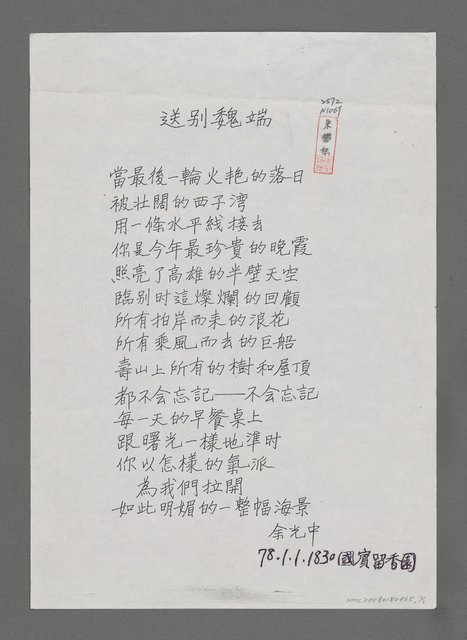 2572
N1069
送别魏端
當最後一輪火艳的落日
被壮闊的西子湾
用一條水平线接去
你是今年最珍貴的晚霞
照亮了高雄的半壁天空
臨别时這燦爛的回顧
所有拍岸而来的浪花
所有乘風而去的巨船
壽山上所有的樹和屋頂
都不会忘記——不会忘記
每一天的早餐桌上
跟曙光一樣地準时
你以怎樣的氣派
為我們拉開
如此明媚的一整幅海景
余光中
78.1.1.1830國賓留香園
NMTL20080180865